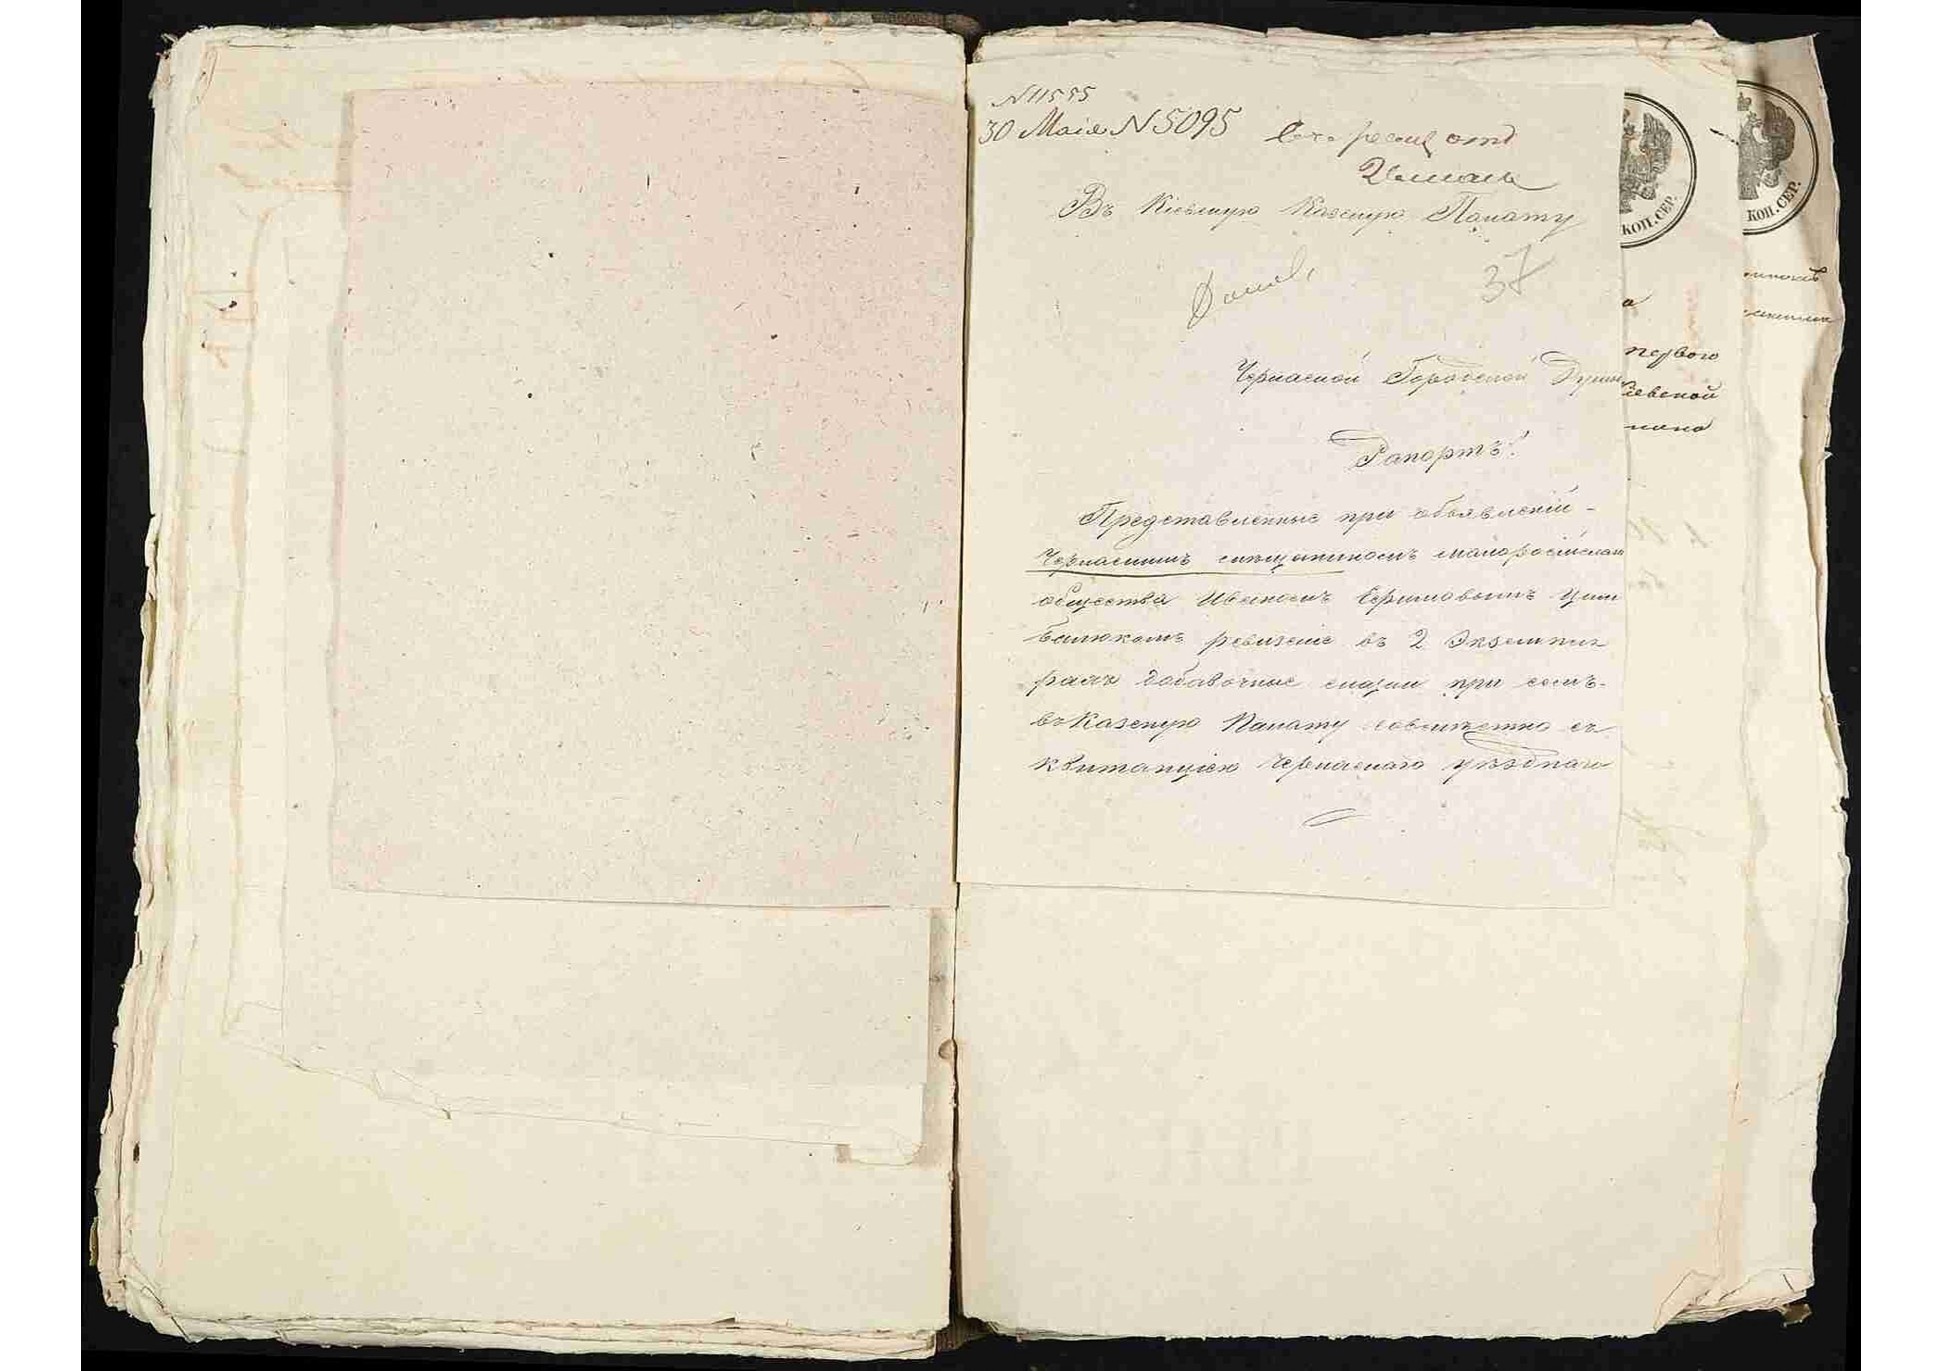 N 11555
30 Маія N 5095
отд
Въ Кіевскую Казеную Палату
37
Черкаской Городской Думы
Рапортъ!
Представленные при объявленіи -
Черкаскимъ мещаниномъ малоросійскаго
общества Иваномъ Ефимовымъ Цим
балюкомъ ревизские въ 2 Экземпля
рахъ добавочные сказки при семъ.
въ Казеную Палату совместно съ
квитанціею Черкаскаго уѣзднаго
КОП. СЕР.
первого
КОП. СЕР.